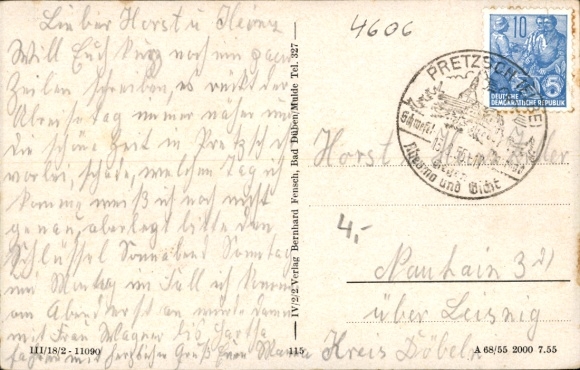 Lieber Horst u Heinz
Will Euch kurz noch ein paar
Zeilen schreiben, es rückt der
Abreise tag immer näher und
die schöne Zeit in Pretzsch ist
vorbei, schade, welchen Tag ich
komme weiß ich noch nicht
genau, überlegt bitte den
Schlüssel Sonnabend Sonntag
und Montag im Fall ich komme
am Abend erst an
mit Frau Wagner bis Hartha
herzlicher Gruß Eure Mama
III/18/2 - 11090
115
IV/2/2 Verlag Bernhard Fensch, Bad Düben/Mulde Tel. 327
4606
10
5
DEUTSCHE
DEMOKRATISCHE REPUBLIK
PRETZSCH (ELBE)
gegen
Rheuma und Gicht
Horst
4,-
Nauhain 3 d
über Leisnig
Kreis Döbeln
A 68/55 2000 7.55